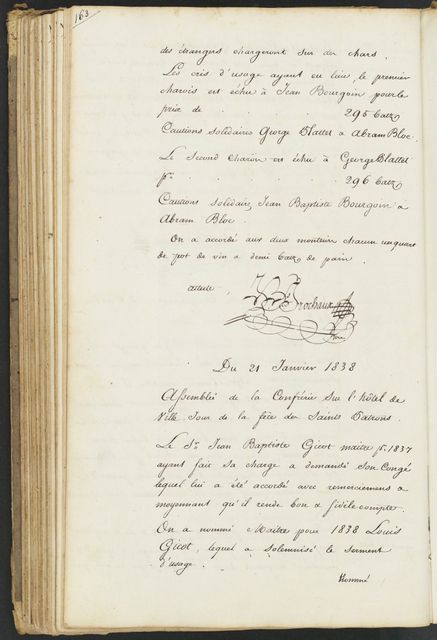 163
des étrangers chargeront sur des chars.
Les cris d'usage ayant eu lieu, le premier
charois est échu à Jean Bourgoin pour le
prix de . . . . 295 batz
Cautions solidaires George Blattet & Abram Bloc.
Le Second Charoi est échu à George Blattet
pr. . . . . 296 batz
Cautions Solidaires Jean Baptiste Bourgoin &
Abram Bloc.
On a accordé aux deux monteurs chacun un quart
de pot de vin & demi batz de pain.
atteste
Frochaux
Du 21 Janvier 1838
Assemblée de la Confrérie Sur l'hôtel de
Ville Jour de la fête des Saints Patrons.
Le Sr. Jean Baptiste Gicot maitre pr. 1837
ayant fait Sa charge a demandé Son Congé
lequel lui a été accordé avec remerciemens &
moyennant qu'il rende bon & fidèle compte.
On a nommé Maitre pour 1838 Louis
Gicot, lequel a Solemnisé le Serment
d'usage.
Nommé